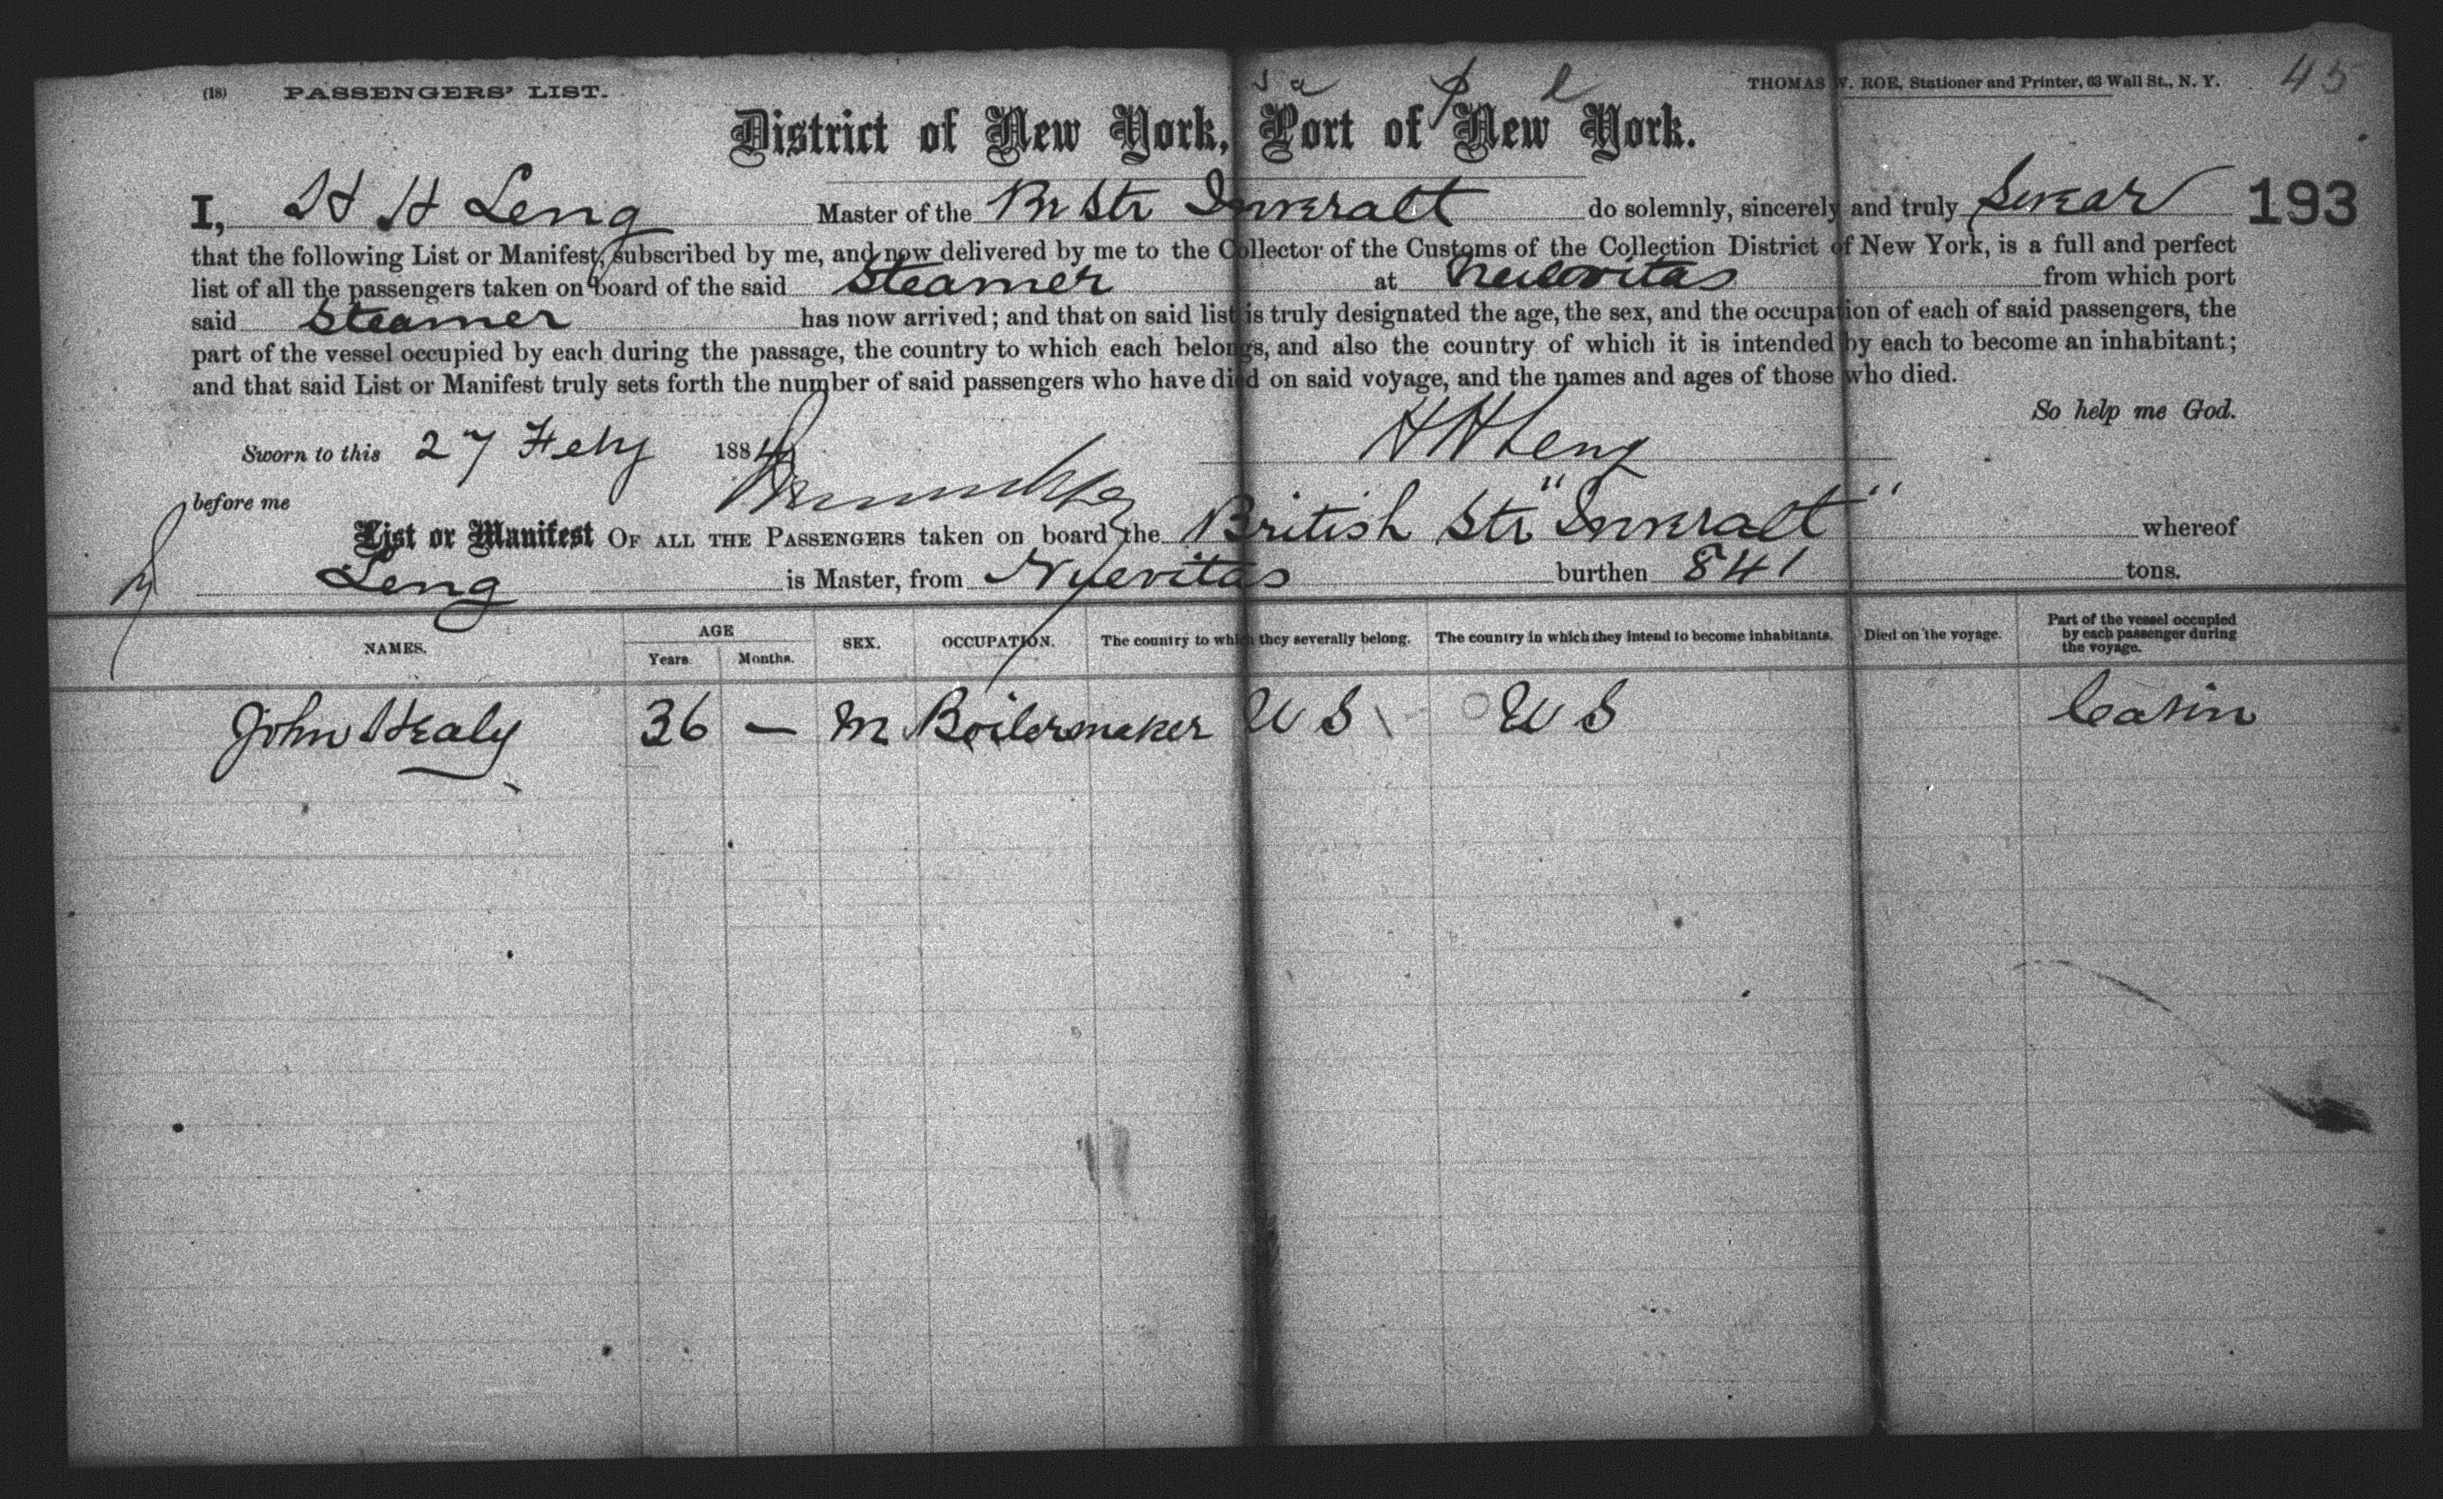 (18) PASSENGERS' LIST. THOMAS W. ROE, Stationer and Printer, 63 Wall St., N. Y. 45
District of New York, Port of New York.
I, H H Leng Master of the Br Str Inveralt do solemnly, sincerely and truly Swear 193
that the following List or Manifest, subscribed by me, and now delivered by me to the Collector of the Customs of the Collection District of New York, is a full and perfect
list of all the passengers taken on board of the said Steamer at Neuevitas from which port
said Steamer has now arrived; and that on said list is truly designated the age, the sex, and the occupation of each of said passengers, the
part of the vessel occupied by each during the passage, the country to which each belongs, and also the country of which it is intended by each to become an inhabitant;
and that said List or Manifest truly sets forth the number of said passengers who have died on said voyage, and the names and ages of those who died.
So help me God.
Sworn to this 27 Feby 1884 H H Leng
before me
List or Manifest OF ALL THE PASSENGERS taken on board the British Str "Inveralt" whereof
Leng is Master, from Nuevitas burthen 841 tons.
NAMES. AGE Years. Months. SEX. OCCUPATION. The country to which they severally belong. The country in which they intend to become inhabitants. Died on the voyage. Part of the vessel occupied by each passenger during the voyage.
John Healy 36 — M Boilermaker U S U S Cabin